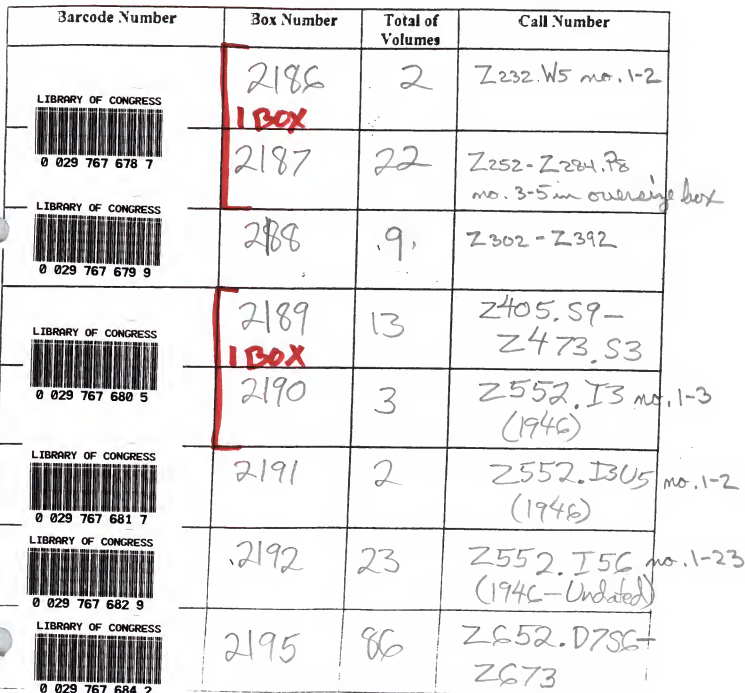 Barcode Number Box Number Total of Volumes Call Number
2186 2 Z232.W5 no. 1-2
LIBRARY OF CONGRESS
1 BOX
0 029 767 678 7
2187 22 Z252-Z284.P8
no. 3-5 in oversize box
LIBRARY OF CONGRESS
0 029 767 679 9
2188 9 Z302-Z392
LIBRARY OF CONGRESS
0 029 767 680 5
2189 13 Z405.S9-
Z473.S3
1 BOX
2190 3 Z552.I3 no. 1-3
(1946)
LIBRARY OF CONGRESS
0 029 767 681 7
2191 2 Z552.I3U5 no. 1-2
(1946)
LIBRARY OF CONGRESS
0 029 767 682 9
2192 23 Z552.I56 no. 1-23
(1946-Undated)
LIBRARY OF CONGRESS
0 029 767 684 2
2195 86 Z652.D7S6-
Z673